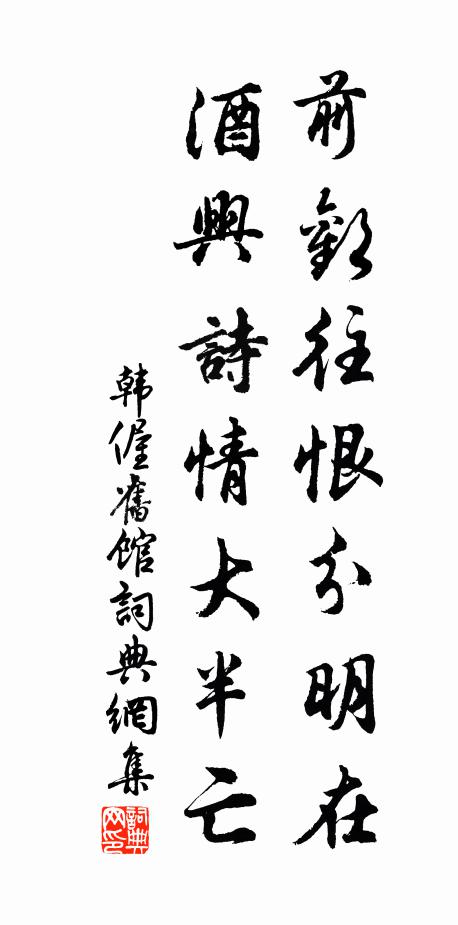 前歡往恨分明在
酒興詩情大半亡
韩偓舊館詞典網集
詞典网印